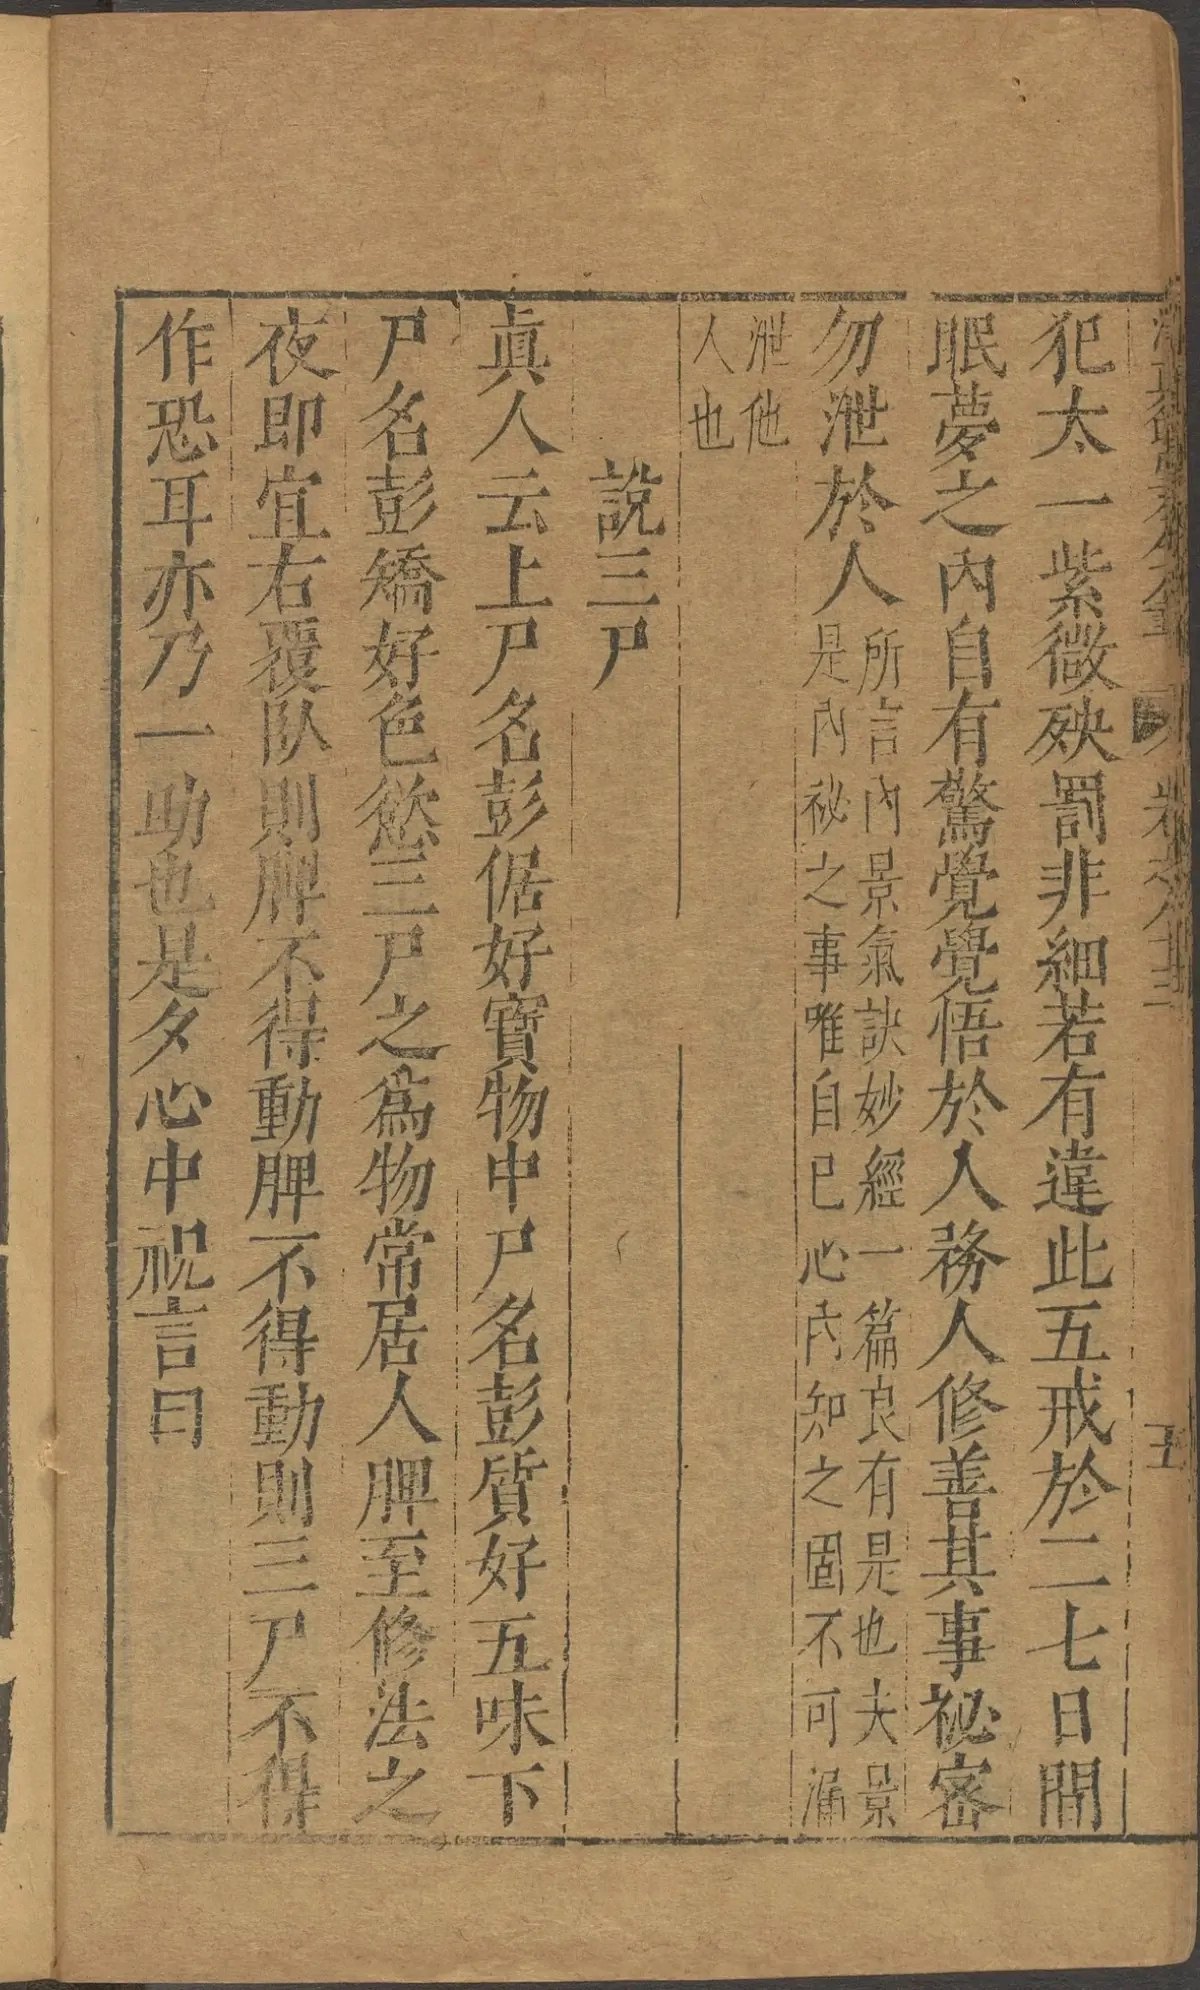 犯太一紫微殃罰非細若有違此五戒於二七日間
眠夢之內自有驚覺覺悟於人務人修善其事祕密
勿泄於人
所言內景氣訣妙經一篇良有是也夫景
是內祕之事唯自已心內知之固不可漏
泄他
人也
說三尸
眞人云上尸名彭倨好寶物中尸名彭質好五味下
尸名彭矯好色慾三尸之爲物常居人脾至修法之
夜即宜右覆臥則脾不得動脾不得動則三尸不得
作恐耳亦乃一助也是夕心中祝言曰